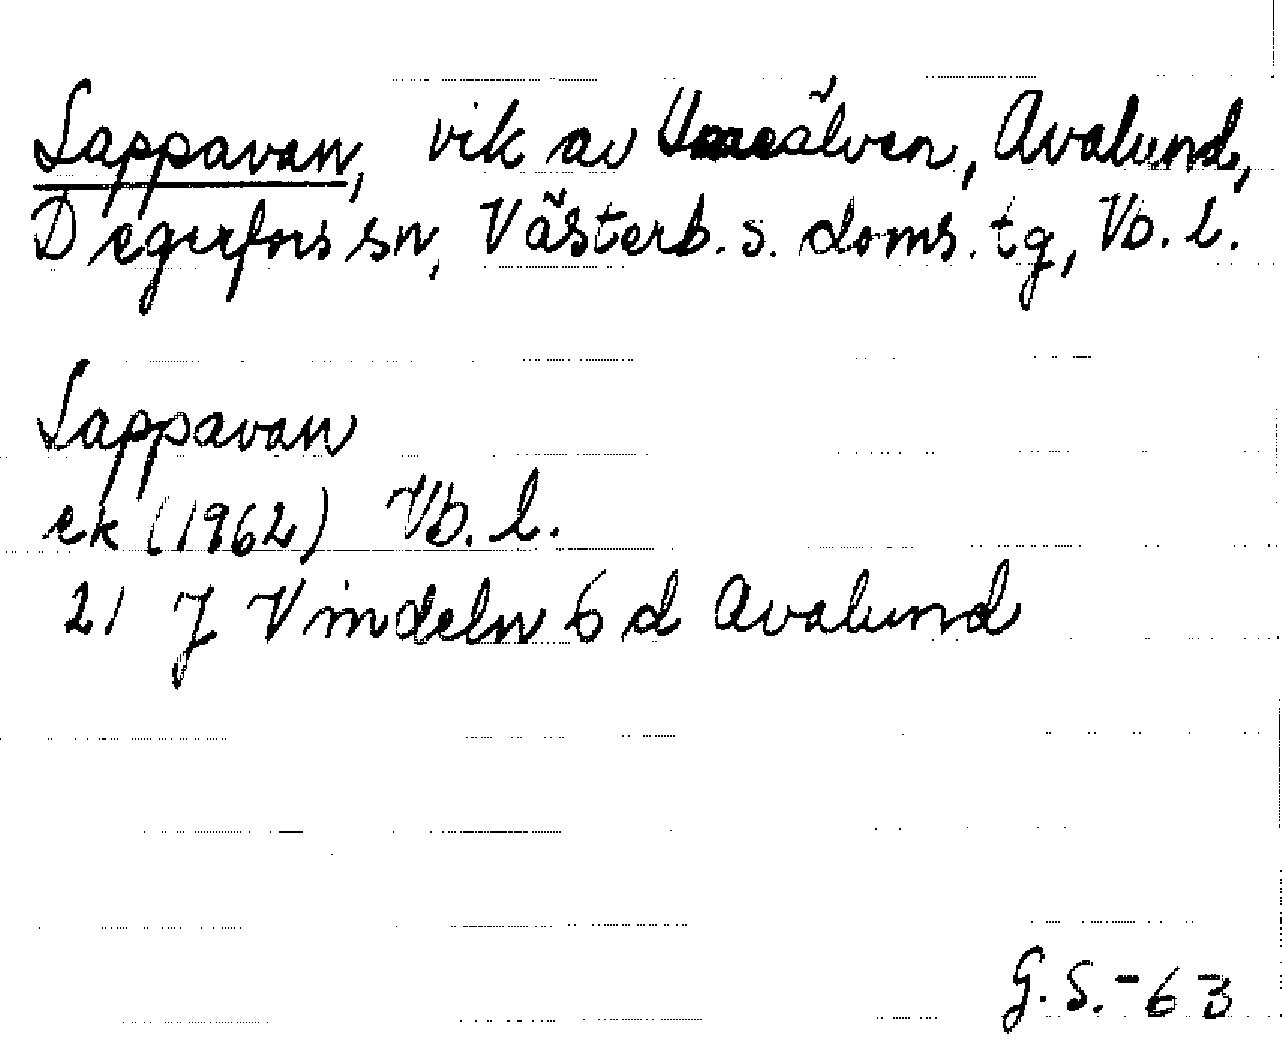 Lappavan, vik av Umeälven, Avalund,
Degerfors sn, Västerb. s. doms. tg, Vb. l.
Lappavan
ek (1962) Vb. l.
21 J Vindeln 6 d Avalund
G. S. -63